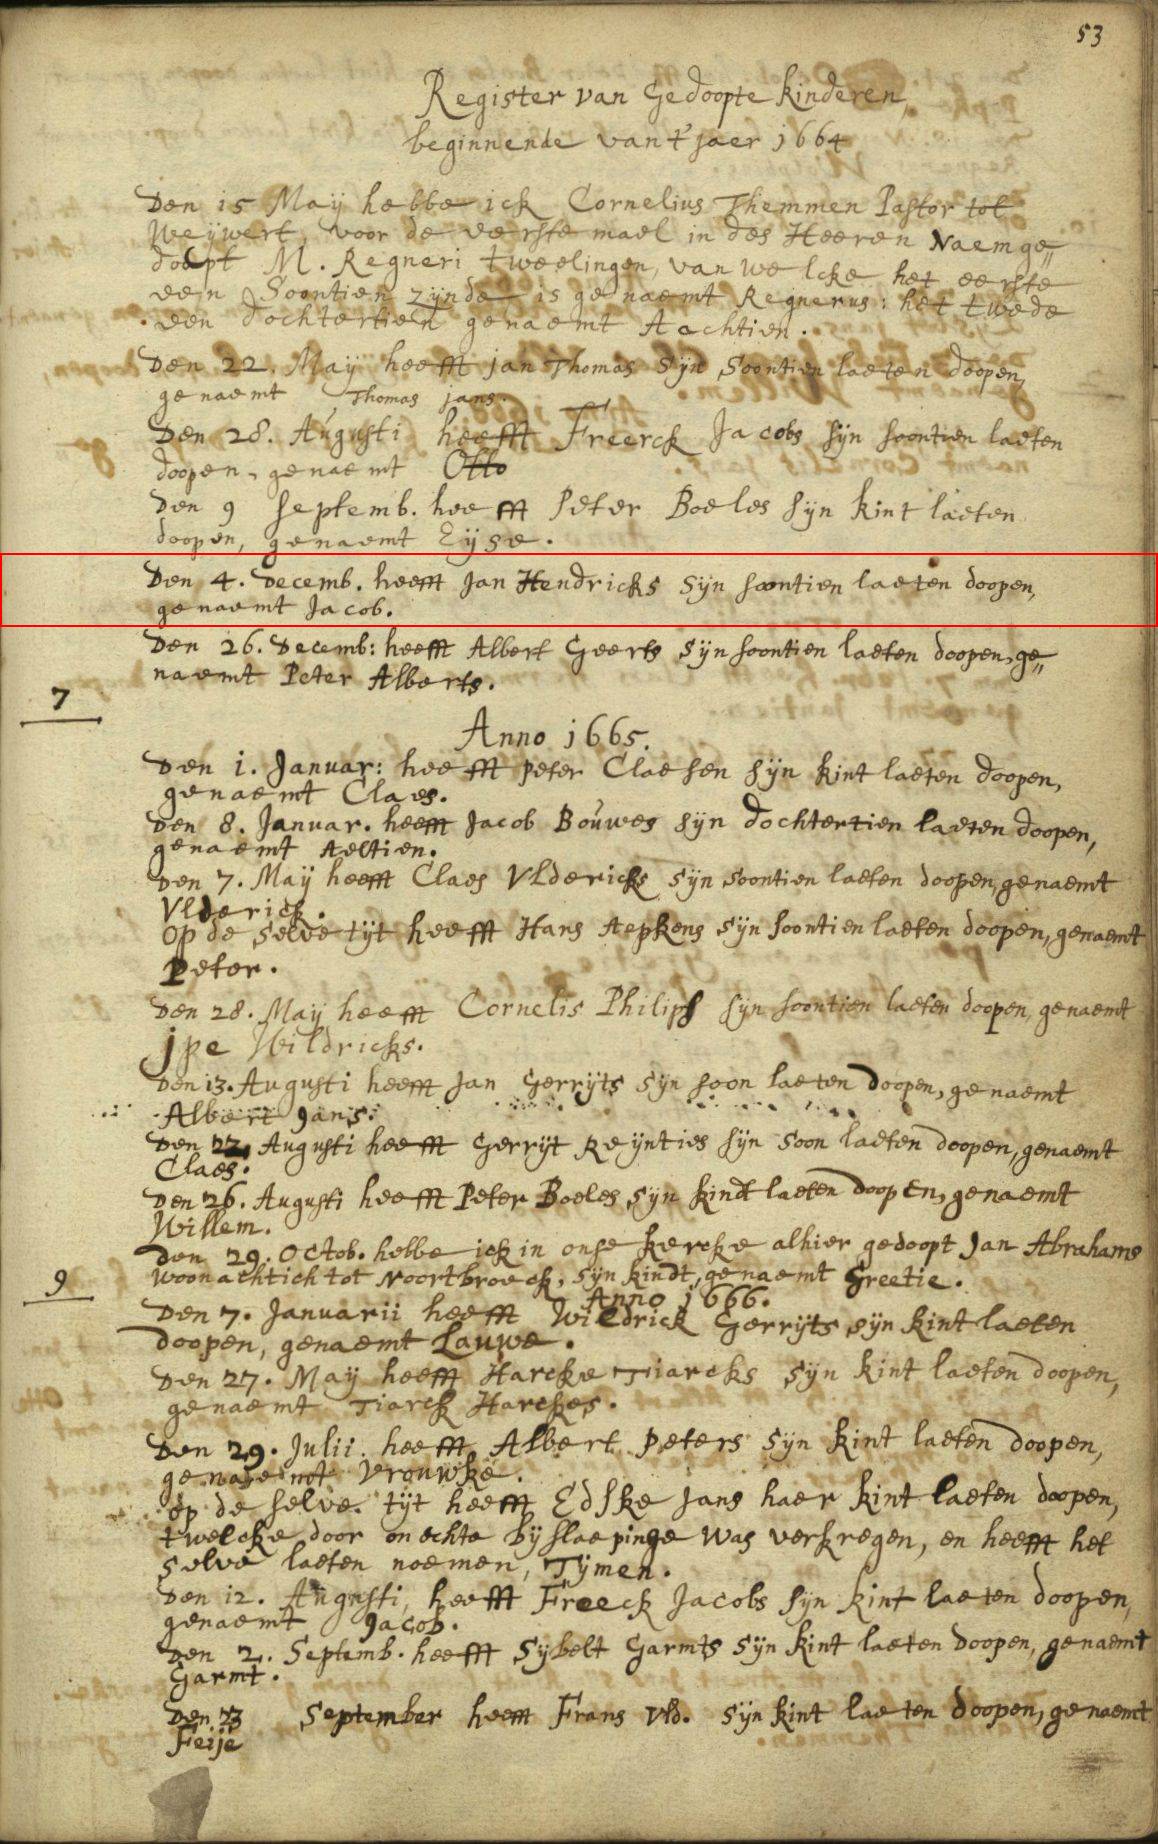 53
Register van Gedoopte kinderen,
beginnende van 't jaer 1664
Den 15 Maij hebbe ick Cornelius Themmen Pastor tot
Weijwert, voor de eerste mael in des Heeren Naem ge„
doopt M. Regneri tweelingen, van welcke het eerste
een Soontien zijnde is genaemt Regnerus: het twede
een dochtertien genaemt Aachtien.
Den 22. Maij heefft jan Thomas Sijn Soontien laeten doopen,
genaemt Thomas jans.
Den 28. Augusti heefft Freerck Jacobs sijn soontien laeten
doopen, genaemt Otto
Den 9 septemb. heefft Peter Boeles sijn kint laeten
doopen, genaemt Eijse.
Den 4. Decemb. heefft Jan Hendricks sijn soontien laeten doopen,
genaemt Jacob.
Den 26. Decemb: heefft Albert Geerts sijn soontien laeten doopen, ge„
naemt Peter Alberts.
7
Anno 1665.
Den 1. Januar: heefft peter Claesen sijn kint laeten doopen,
genaemt Claes.
Den 8. Januar. heefft Jacob Bouwes sijn dochtertien laeten doopen,
genaemt Aeltien.
Den 7. Maij heefft Claes Vldericks sijn soontien laeten doopen, genaemt
Vlderick.
Op de selve tijt heefft Hans Aepkens sijn soontien laeten doopen, genaemt
Peter.
Den 28. Maij heefft Cornelis Philips sijn soontien laeten doopen, genaemt
jpe Wildricks.
Den 13. Augusti heefft Jan Gerrijts sijn soon laeten doopen, genaemt
Albert Jans.
Den 22. Augusti heefft Gerrijt Reijnties sijn soon laeten doopen, genaemt
Claes.
Den 26. Augusti heefft Peter Boeles sijn kindt laeten doopen, genaemt
Willem.
Den 29. Octob. hebbe ick in onse kercke alhier gedoopt Jan Abrahams
woonachtich tot Noortbroeck, sijn kindt, genaemt Greetie.
9
Anno 1666.
Den 7. Januarii heefft Wildrick Gerrijts sijn kint laeten
doopen, genaemt Lauwe.
Den 27. Maij heefft Harcke Tiarcks sijn kint laeten doopen,
genaemt Tiarck Harckes.
Den 29. Julii. heefft Albert Peters sijn kint laeten doopen,
genaemt Vrouwke.
op de selve. tijt heefft Edske Jans haer kint laeten doopen,
twelcke door onechte bijslaepinge was verkregen, en heefft het
selve laeten noemen, Tijmen.
Den 12. Augusti, heefft Freeck Jacobs sijn kint laeten doopen,
genaemt Jacob.
Den 2. Septemb. heefft Sijbelt Garmts sijn kint laeten doopen, genaemt
Garmt.
Den 23 September heefft Frans Vld. sijn kint laeten doopen, genaemt
Feije